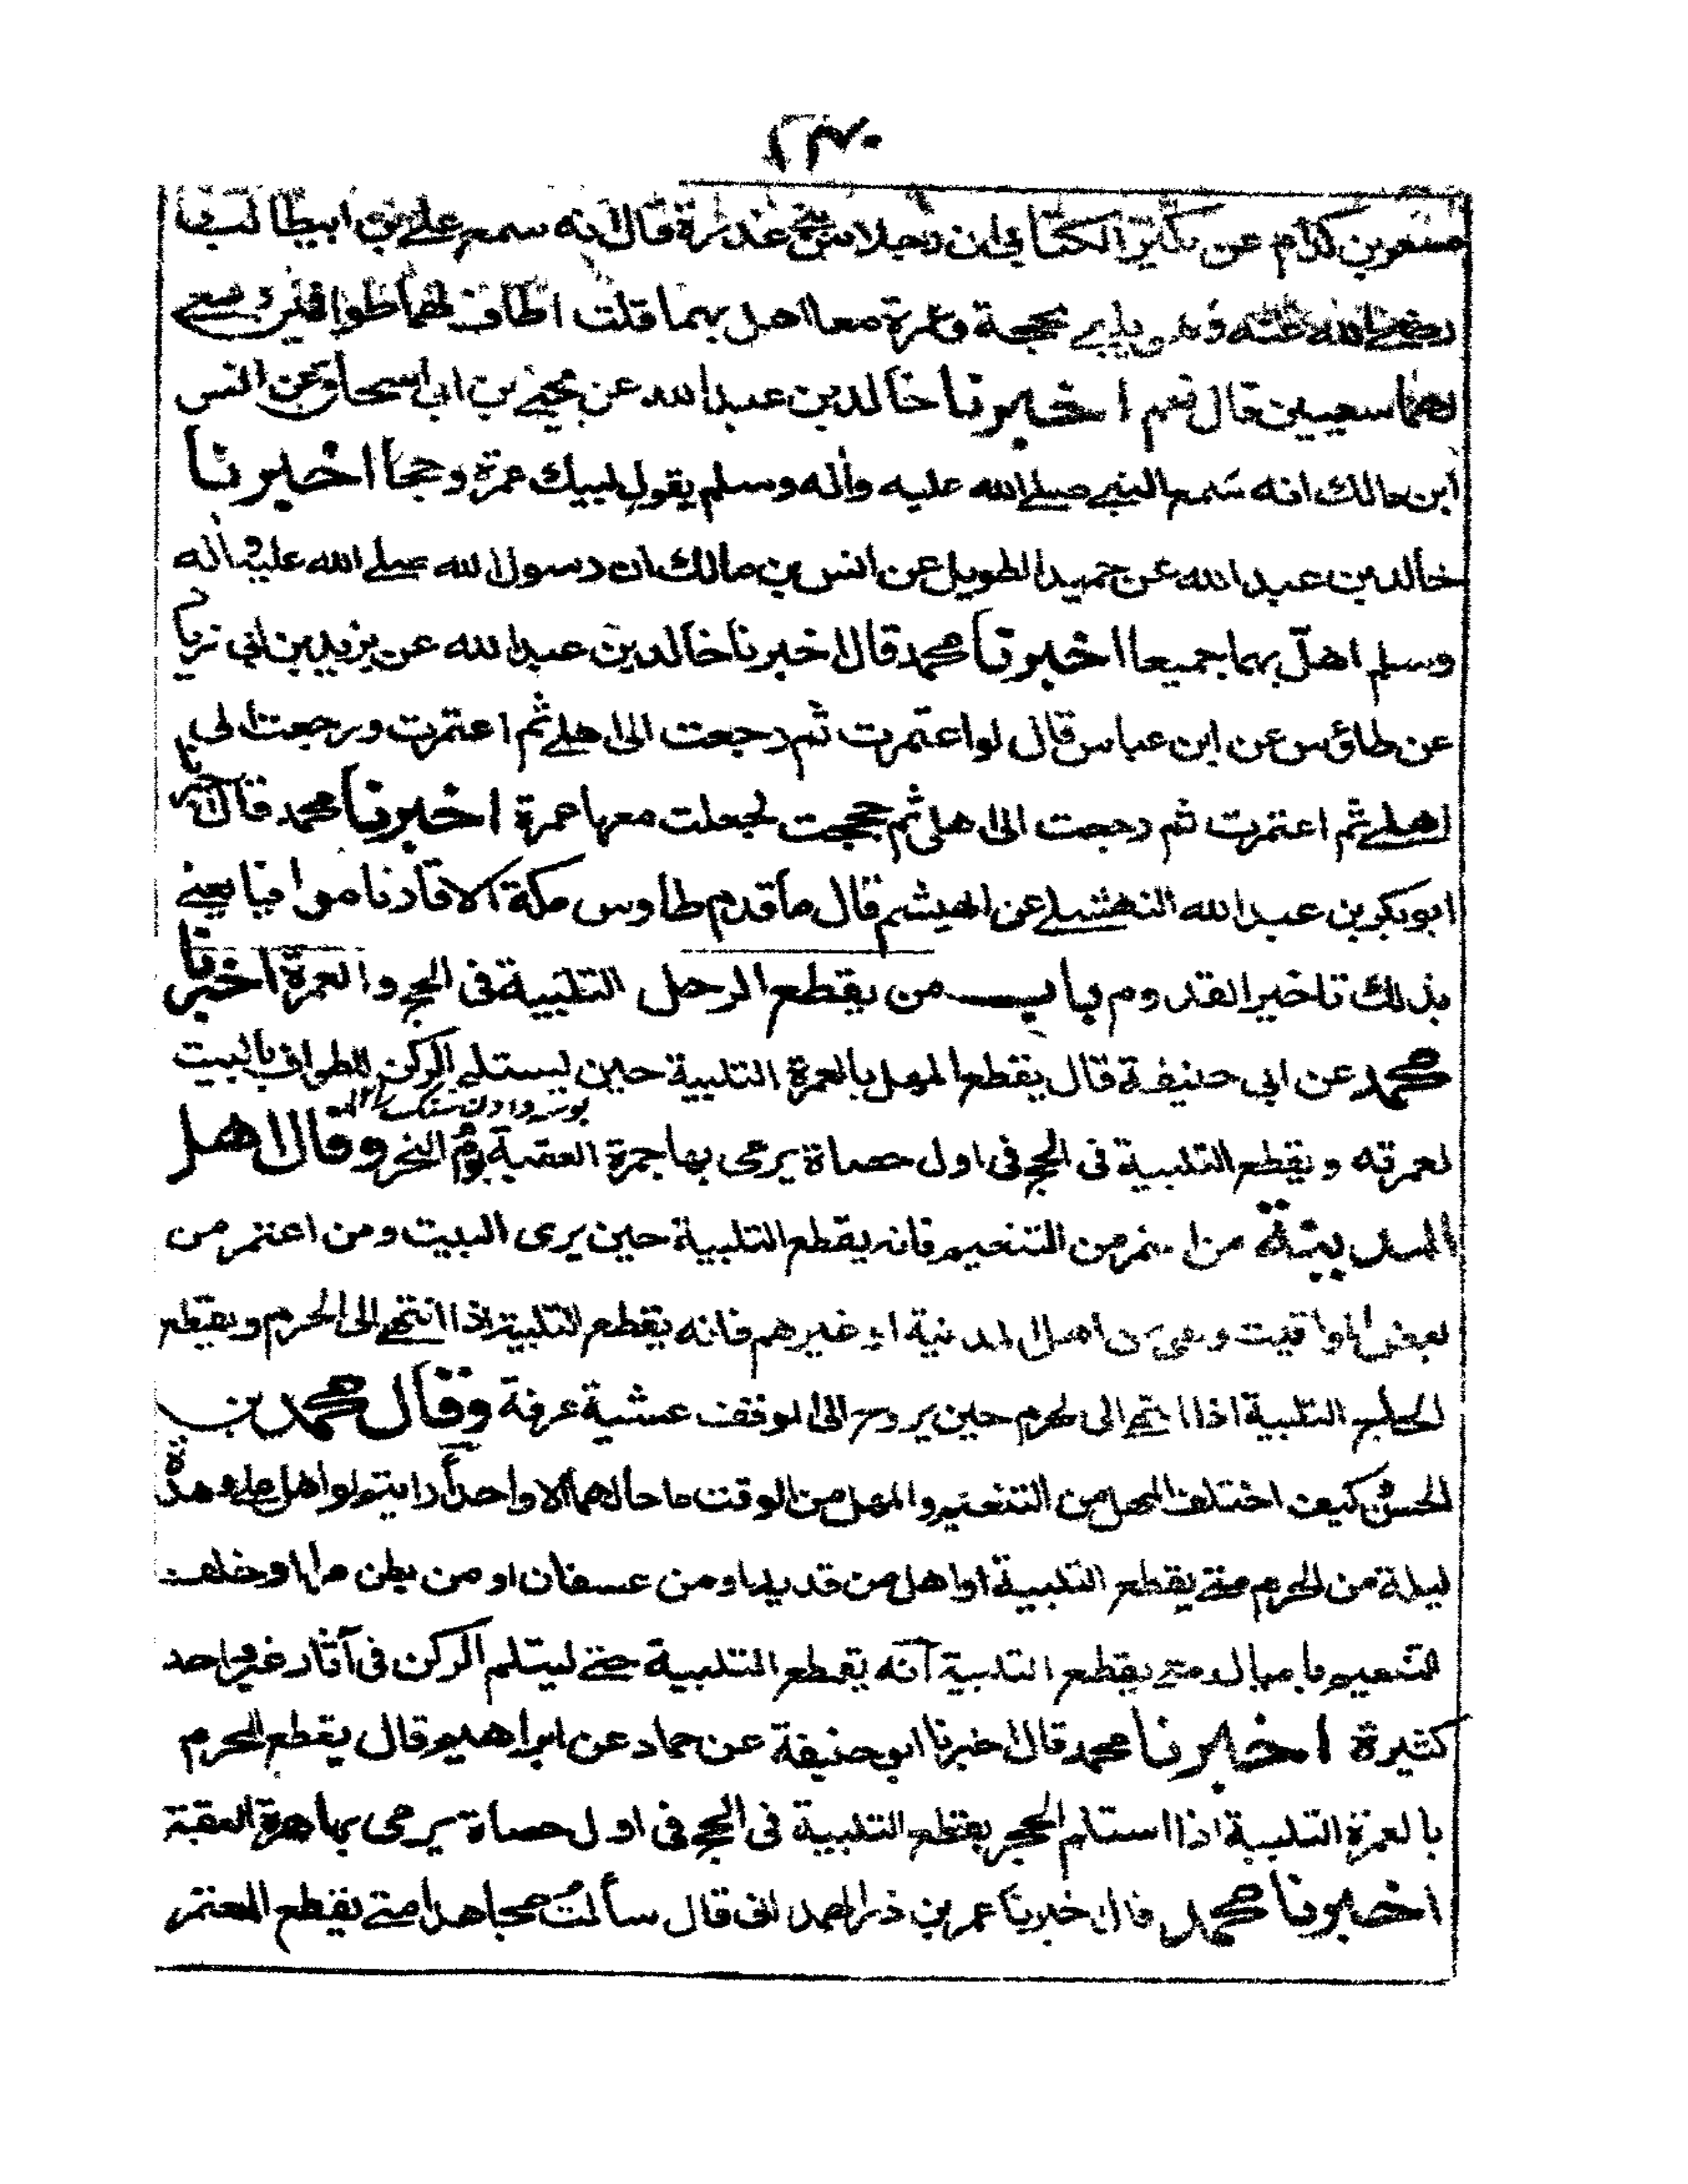 مسعر بن كدام عن بكير الكتابي ان رجلا من عذرة قال انه سمع علي بن ابيطالب
رضي الله عنه وهو يلبي بحجة وعمرة معا اهل بهما قلت اطاف لهما طوافين وسعى
لهما سعيين قال نعم اخبرنا خالد بن عبد الله عن يحيى بن ابي اسحاق عن انس
ابن مالك انه سمع النبي صلى الله عليه واله وسلم يقول لبيك عمرة وحجا اخبرنا
خالد بن عبد الله عن حميد الطويل عن انس بن مالك ان رسول الله صلى الله عليه واله
وسلم اهل بهما جميعا اخبرنا محمد قال اخبرنا خالد بن عبد الله عن يزيد بن ابي زياد
عن طاؤس عن ابن عباس قال لو اعتمرت ثم رجعت الى اهلي ثم اعتمرت ورجعت الى
اهلي ثم اعتمرت ثم رجعت الى اهلي ثم حججت لجعلت معها عمرة اخبرنا محمد قال اخبرنا
ابو بكر بن عبد الله النهشلي عن الهيثم قال ما قدم طاوس مكة الا قارنا موافيا يعني
بذلك تاخير القدوم باب من يقطع الرجل التلبية فى الحج والعمرة اخبرنا
محمد عن ابى حنيفة قال يقطع المهل بالعمرة التلبية حين يستلم الركن للطواف بالبيت
لعمرته ويقطع التلبية فى الحج فى اول حصاة يرمى بها جمرة العقبة يوم النحر وقال اهل
المدينة من اعتمر من التنعيم فانه يقطع التلبية حين يرى البيت ومن اعتمر من
بعض المواقيت وهو من اهل المدنية او غيرهم فانه يقطع التلبية اذا انتهى الى الحرم ويقطع
الحاج التلبية اذا انتهى الى الحرم حين يروح الى الموقف عشية عرفة وقال محمد بن
الحسن كيف اختلف المهل من التنعيم والمهل من الوقت ما حالهما الا واحدا رايتم لو اهل على هذة
ليلة من الحرم متى يقطع التلبية او اهل من قديد او من عسفان او من بطن مر او خلف
التنعيم باميال متى يقطع التلبية انه يقطع التلبية حتى يستلم الركن فى آثار غير واحد
كثيرة اخبرنا محمد قال اخبرنا ابو حنيفة عن حماد عن ابراهيم قال يقطع المحرم
بالعمرة التلبية اذا استلم الحجر يقطع التلبية فى الحج فى اول حصاة يرمى بها جمرة العقبة
اخبرنا محمد قال اخبرنا عمر بن ذر الهمدانى قال سألت مجاهدا متى يقطع المعتمر